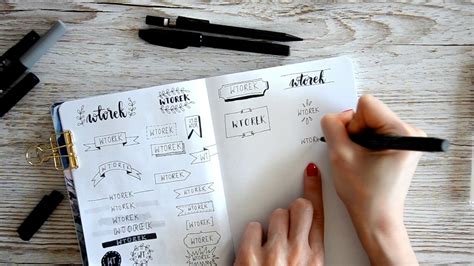 wtorek
WTOREK
WTOREK
WTOREK
WTOREK
WTOREK
WT
WTOREK
WTOREK
WTOREK
WTOREK
WTOREK
WTOREK
WTOREK
WTOREK
WTOREK
WT
WTOREK
wtorek
WTOREK
WTOREK
WTOREK
WTOREK
wtorek
WTOREK
WTOREK
WTOR